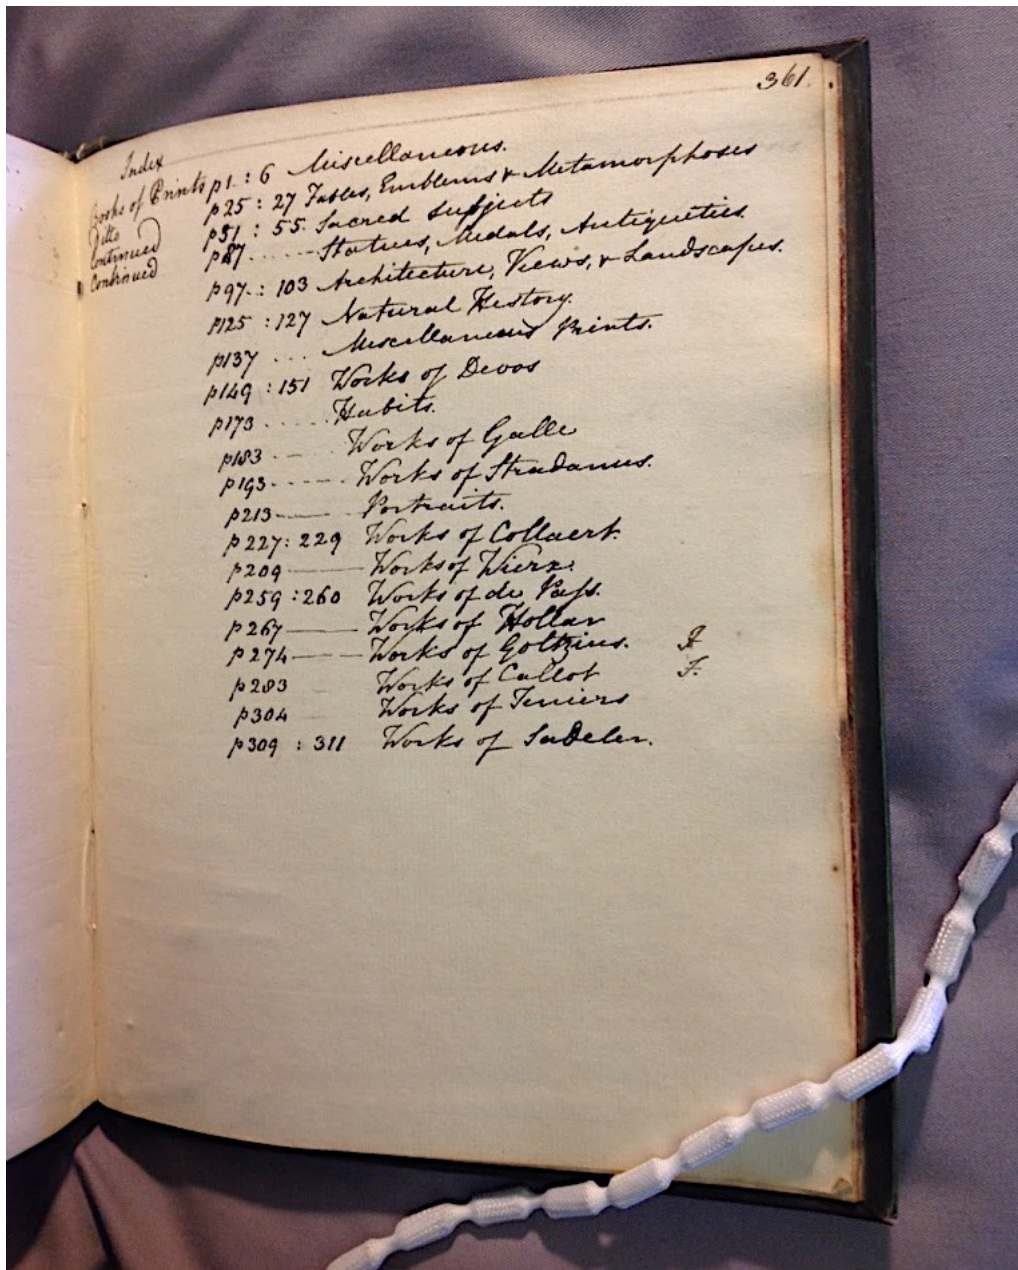 361.
Index
Books of Prints p1. : 6 Miscellaneous.
Ditto p25 : 27 Fables, Emblems & Metamorphoses
Continued p51 : 55. Sacred Subjects
Continued p87 ...... Statues, Medals, Antiqueties.
p97. : 103 Architecture, Views, & Landscapes.
p125 : 127 Natural History.
p137 ... Miscellaneous Prints.
p149 : 151 Works of Devos
p173 ..... Habits.
p183 ---- Works of Galle
p193 ------ Works of Stradanus.
p213 —— Portraits.
p227 : 229 Works of Collaert.
p209 —— Works of Wierx.
p259 : 260 Works of de Paſs.
p267 —— Works of Hollar
p274 —— Works of Goltzius.
p283 Works of Callot F.
p304 Works of Teniers
p309 : 311 Works of Sadeler.